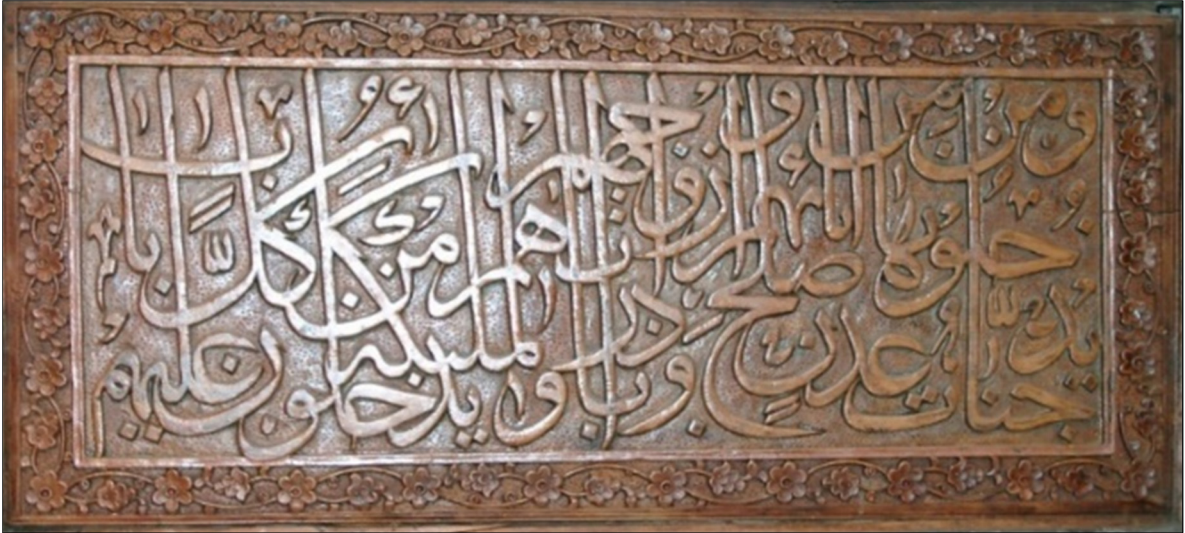 جنات عدن يدخلونها ومن صلح من آبائهم وأزواجهم وذرياتهم والملائكة يدخلون عليهم من كل باب